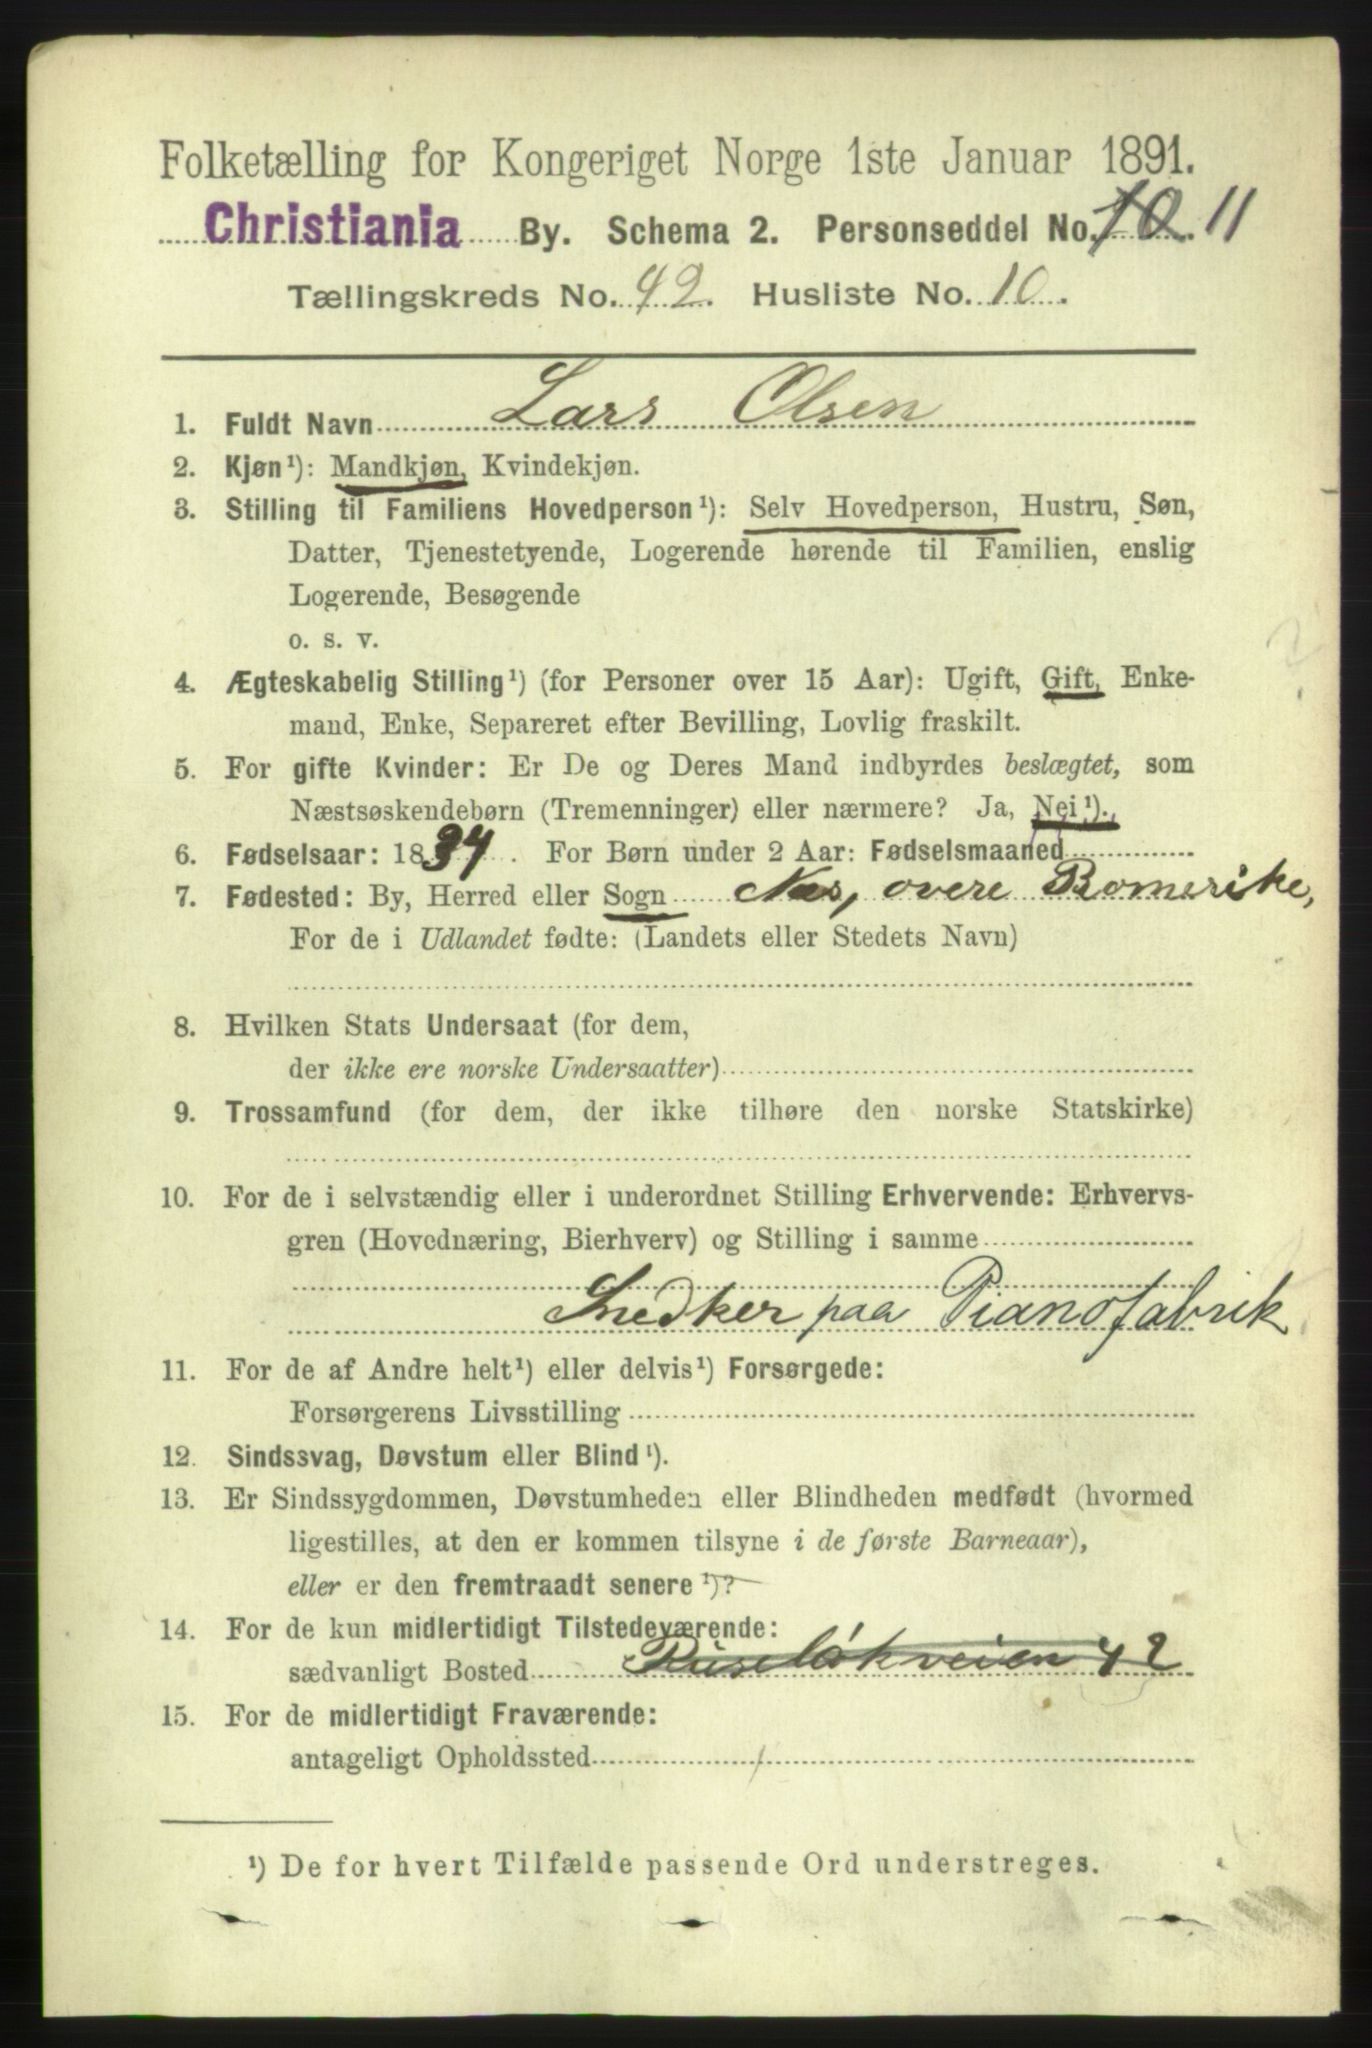 Folketælling for Kongeriget Norge 1ste Januar 1891.
Christiania By. Schema 2. Personseddel No. 10. 11
Tællingskreds No. 42. Husliste No. 10.
1. Fuldt Navn Lars Olsen
2. Kjøn¹): Mandkjøn, Kvindekjøn.
3. Stilling til Familiens Hovedperson¹): Selv Hovedperson, Hustru, Søn,
Datter, Tjenestetyende, Logerende hørende til Familien, enslig
Logerende, Besøgende
o. s. v.
4. Ægteskabelig Stilling¹) (for Personer over 15 Aar): Ugift, Gift, Enke-
mand, Enke, Separeret efter Bevilling, Lovlig fraskilt.
5. For gifte Kvinder: Er De og Deres Mand indbyrdes beslægtet, som
Næstsøskendebørn (Tremenninger) eller nærmere? Ja, Nei¹).
6. Fødselsaar: 1834. For Børn under 2 Aar: Fødselsmaaned
7. Fødested: By, Herred eller Sogn Næs, övere Romerike,
For de i Udlandet fødte: (Landets eller Stedets Navn)
8. Hvilken Stats Undersaat (for dem,
der ikke ere norske Undersaatter)
9. Trossamfund (for dem, der ikke tilhøre den norske Statskirke)
10. For de i selvstændig eller i underordnet Stilling Erhvervende: Erhvervs-
gren (Hovednæring, Bierhverv) og Stilling i samme
Snedker paa Pianofabrik
11. For de af Andre helt¹) eller delvis¹) Forsørgede:
Forsørgerens Livsstilling
12. Sindssvag, Døvstum eller Blind¹).
13. Er Sindssygdommen, Døvstumheden eller Blindheden medfødt (hvormed
ligestilles, at den er kommen tilsyne i de første Barneaar),
eller er den fremtraadt senere¹)?
14. For de kun midlertidigt Tilstedeværende:
sædvanligt Bosted Ruseløkveien 42
15. For de midlertidigt Fraværende:
antageligt Opholdssted
¹) De for hvert Tilfælde passende Ord understreges.